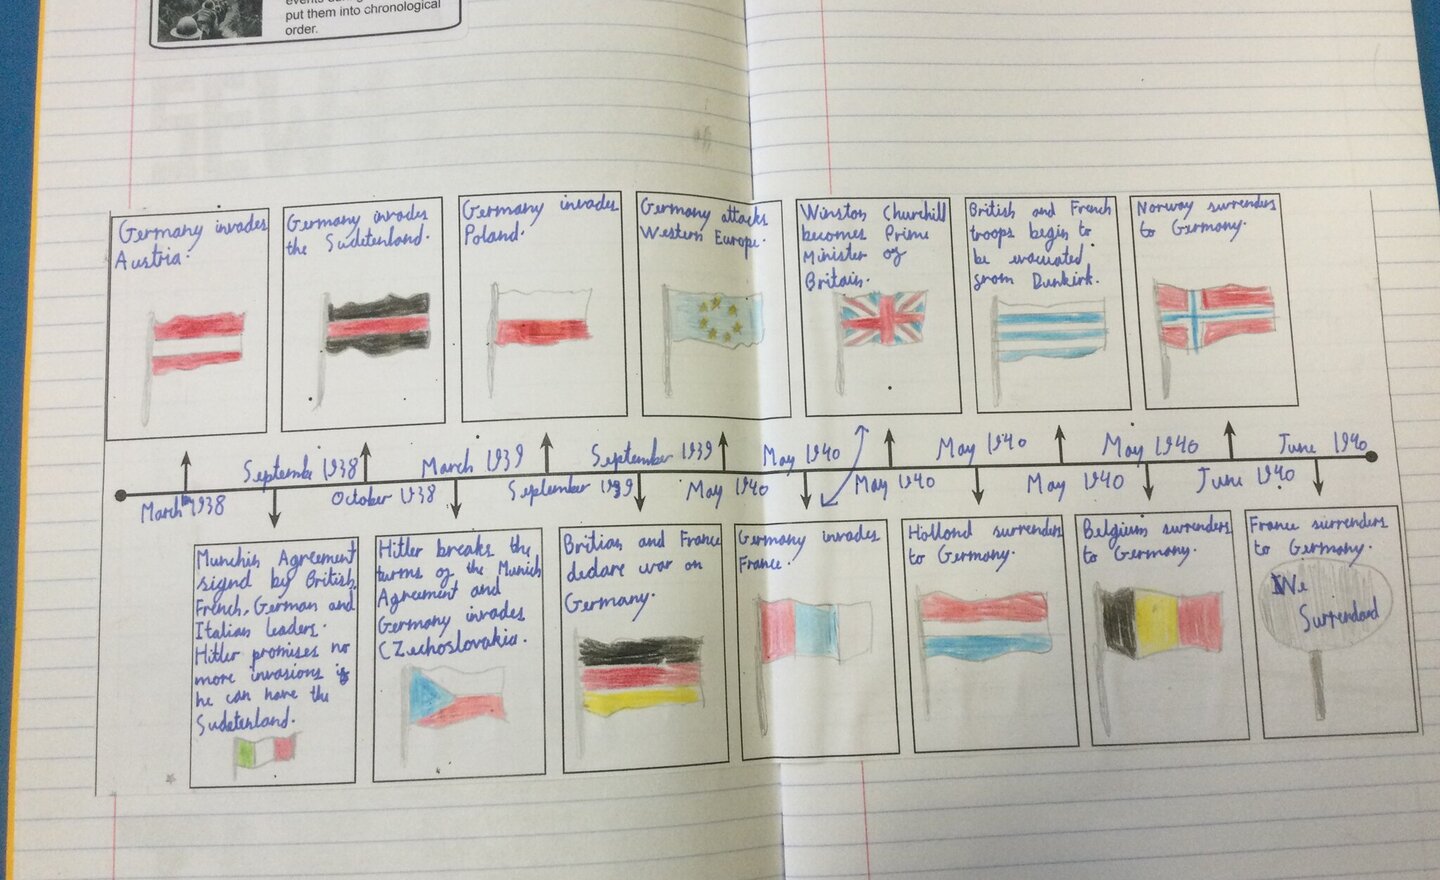 put them into chronological
order.
Germany invades
Austria.
Germany invades
the Sudetenland.
Germany invades
Poland.
Germany attacks
Western Europe.
Winston Churchill
becomes Prime
Minister of
Britain.
British and French
troops begin to
be evacuated
from Dunkirk.
Norway surrenders
to Germany.
September 1938
March 1939
September 1939
May 1940
May 1940
May 1940
June 1940
March 1938
October 1938
September 1939
May 1940
May 1940
May 1940
June 1940
Munchin Agreement
signd by British,
French, German and
Italian leaders.
Hitler promises no
more invasions if
he can have the
Sudetenland.
Hitler breaks the
terms of the Munich
Agreement and
Germany invades
CZechoslovakia.
Britian and France
declare war on
Germany.
Germany invades
France.
Hollond surrenders
to Germany.
Belgium surrenders
to Germany.
France surrenders
to Germany.
We
Surrendard